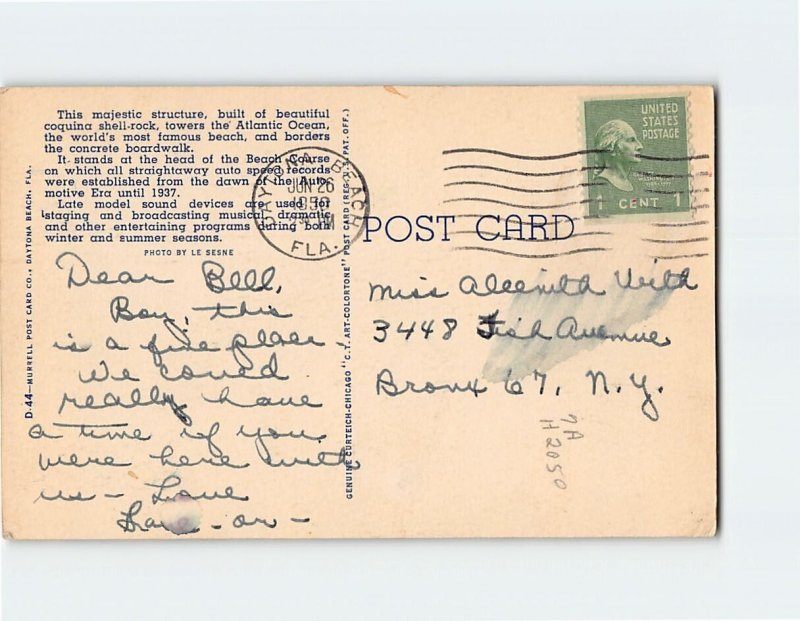 This majestic structure, built of beautiful
coquina shell-rock, towers the Atlantic Ocean,
the world's most famous beach, and borders
the concrete boardwalk.
It stands at the head of the Beach course
on which all straightaway auto speed records
were established from the dawn of the Auto-
motive Era until 1937.
Late model sound devices are used in
staging and broadcasting musical, dramatic
and other entertaining programs during both
winter and summer seasons.
PHOTO BY LE SESNE
D-44—MURRELL POST CARD CO., DAYTONA BEACH, FLA.
GENUINE CURTEICH-CHICAGO "C.T. ART-COLORTONE" POST CARD (REG. U.S. PAT. OFF.)
DAYTONA BEACH
JUN 26
PM
FLA.
UNITED
STATES
POSTAGE
1 CENT 1
POST CARD
Dear Bell,
Boy, this
is a fine place.
We could
really have
a time if you
were here with
us - Love
Miss
3448 Fish Avenue
Bronx 67, N.Y.
7A
H2050